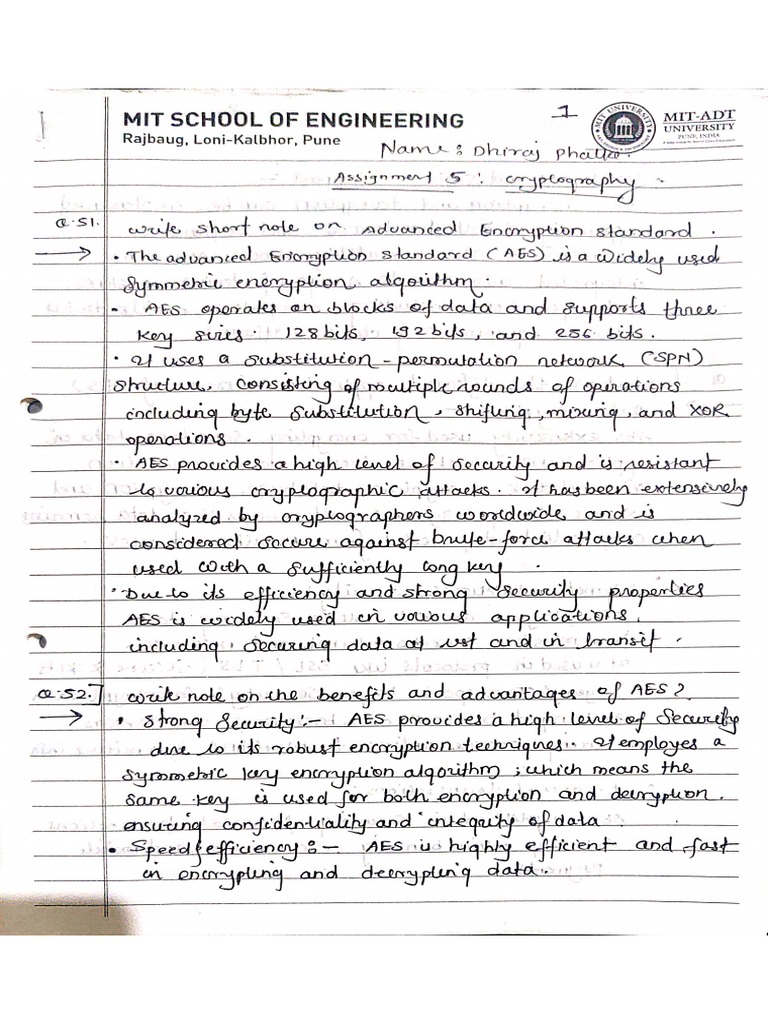 MIT SCHOOL OF ENGINEERING
Rajbaug, Loni-Kalbhor, Pune
1
MIT-ADT
UNIVERSITY
PUNE, INDIA
Name: Dhiraj Phalke.
Assignment 5 : cryptography.
Q.51. write short note on Advanced Encryption Standard.
→ • The advanced Encryption standard (AES) is a widely used
symmetric encryption algorithm.
• AES operates on blocks of data and supports three
key sizes. 128 bits, 192 bits, and 256 bits.
• It uses a substitution-permutation network (SPN)
structure, consisting of multiple rounds of operations
including byte substitution, shifting, mixing, and XOR
operations.
• AES provides a high level of security and is resistant
to various cryptographic attacks. It has been extensively
analyzed by cryptographers worldwide and is
considered secure against brute-force attacks when
used with a sufficiently long key.
• Due to its efficiency and strong security properties
AES is widely used in various applications,
including securing data at rest and in transit.
Q.52.] write note on the benefits and advantages of AES?
→ • Strong Security:- AES provides a high level of security
due to its robust encryption techniques. It employes a
symmetric key encryption algorithm; which means the
same key is used for both encryption and decryption.
ensuring confidentiality and integrity of data
• Speed & efficiency:- AES is highly efficient and fast
in encrypting and decrypting data.